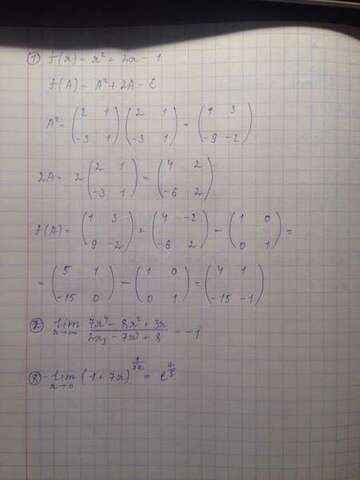 ① f(x) = x² + 2x - 1
f(A) = A² + 2A - E
A² = (2 1; -3 1) (2 1; -3 1) = (1 3; -9 -2)
2A = 2 (2 1; -3 1) = (4 2; -6 2)
f(A) = (1 3; -9 -2) + (4 -2; -6 2) - (1 0; 0 1) =
= (5 1; -15 0) - (1 0; 0 1) = (4 1; -15 -1)
② lim x→∞ (7x⁴ - 8x² + 3x)/(2x³ - 7x⁴ + 8) = -1
③ lim x→0 (1 + 7x)